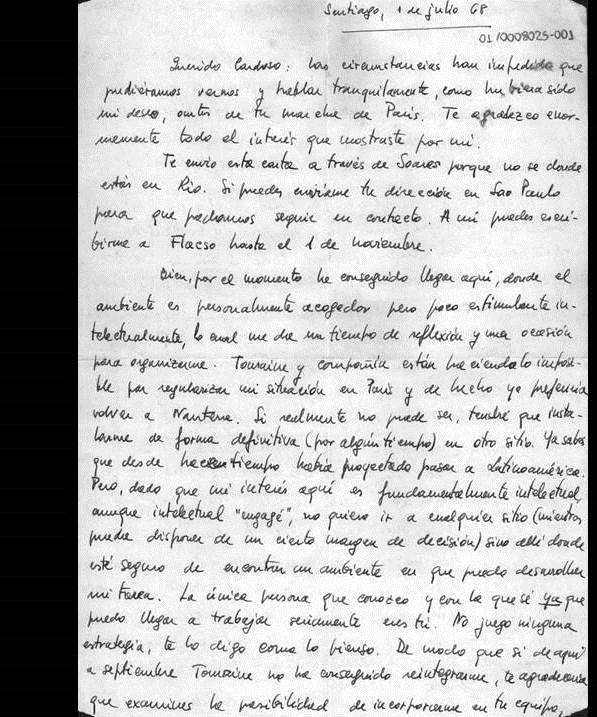 Santiago, 1 de julio 68
01/0008025-001
Querido Cardoso: las circunstancias han impedido que
pudiéramos vernos y hablar tranquilamente, como hubiera sido
mi deseo, antes de tu marcha de París. Te agradezco enor-
memente todo el interés que mostraste por mí.
Te envío esta carta a través de Soares porque no se donde
estás en Río. Si puedes envíame tu dirección en Sao Paulo
para que podamos seguir en contacto. A mí puedes escri-
birme a Flacso hasta el 1 de noviembre.
Bien, por el momento he conseguido llegar aquí, donde el
ambiente es personalmente acogedor pero poco estimulante in-
telectualmente, lo cual me da un tiempo de reflexión y una ocasión
para organizarme. Touraine y compañía están haciendo lo imposi-
ble por regularizar mi situación en París y de hecho yo preferiría
volver a Nanterre. Si realmente no puede ser, tendré que insta-
larme de forma definitiva (por algún tiempo) en otro sitio. Ya sabes
que desde hace tiempo había proyectado pasar a Latinoamérica.
Pero, dado que mi interés aquí es fundamentalmente intelectual,
aunque intelectual "engagé", no quiero ir a cualquier sitio (mientras
pueda disponer de un cierto margen de decisión) sino allí donde
esté seguro de encontrar un ambiente en que pueda desarrollar
mi tarea. La única persona que conozco y con la que sé ya que
puedo llegar a trabajar seriamente eres tú. No juego ninguna
estrategia, te lo digo como lo pienso. De modo que si de aquí
a septiembre Touraine no ha conseguido reintegrarme, te agradecería
que examines la posibilidad de incorporarme en tu equipo,